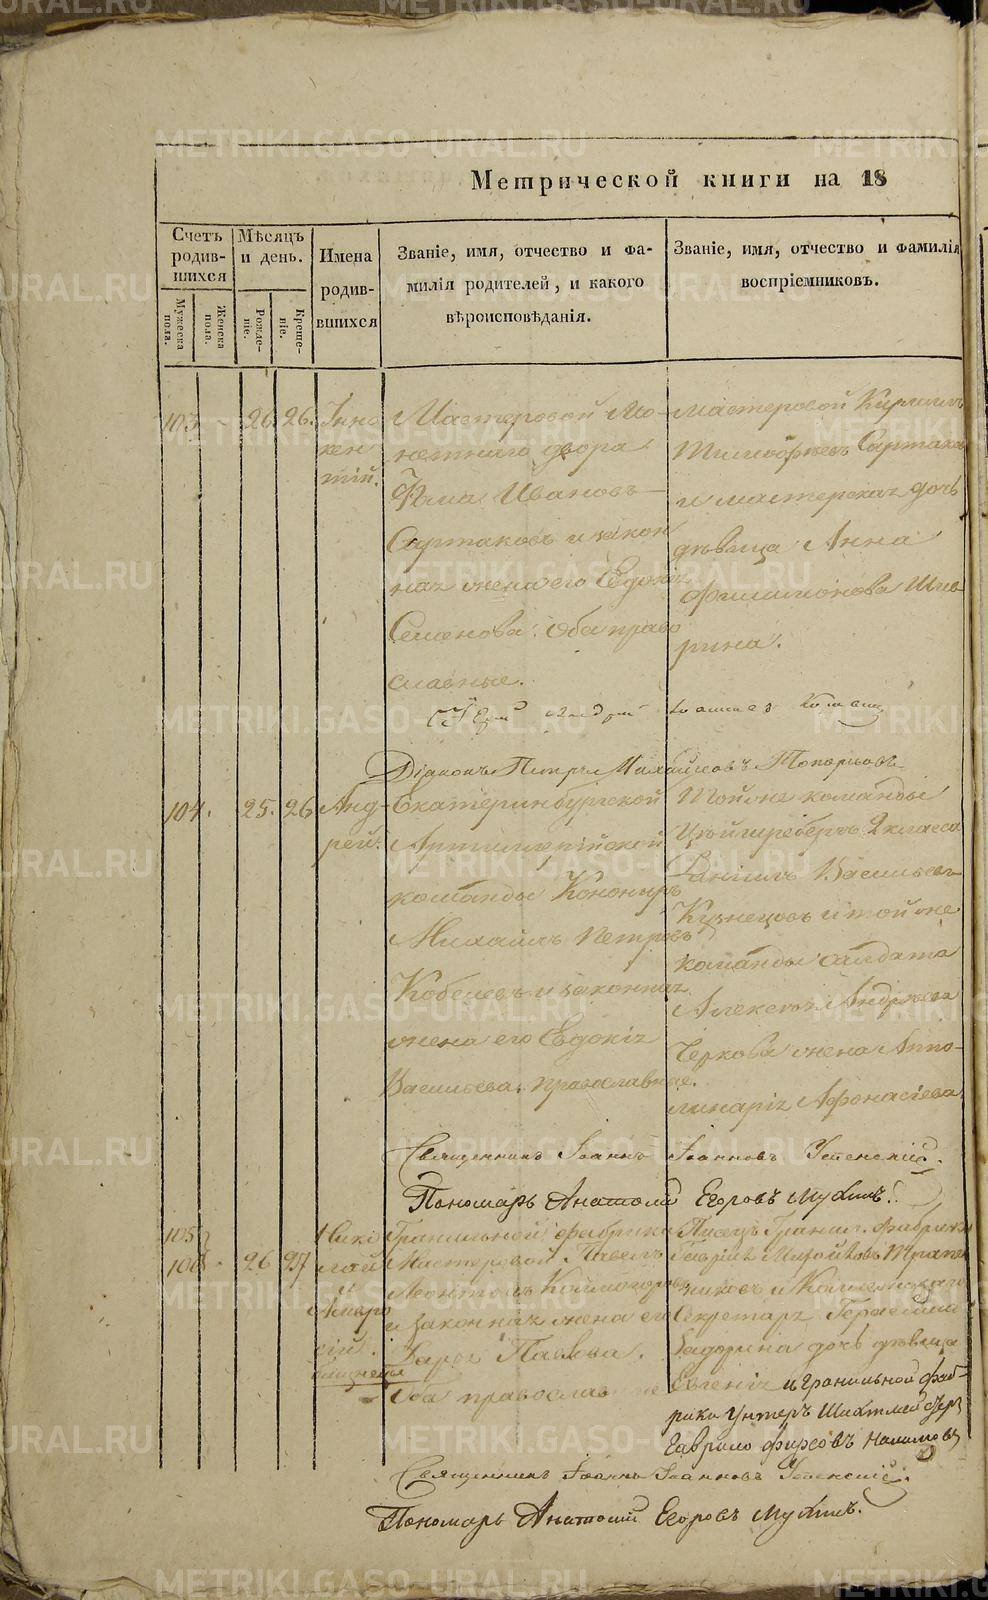 Метрической книги на 18
Счетъ родив-шихся
Мѣсяцъ и день.
Имена родив-вшихся
Званіе, имя, отчество и фа-
милія родителей, и какого
вѣроисповѣданія.
Званіе, имя, отчество и фамилія
воспріемниковъ.
Мужеска пола.
Женска пола.
Рожде-ніе.
Креще-ніе.
103 - 26. 26. Інно
кен
тій.
Мастеровой Мо-
нетнаго двора
Ѳома Ивановъ
Сартаковъ и закон
ная жена его Евдокія
Семенова. Оба право
славные.
мастеровой Кириллъ
Тимофѣевъ Сартаков
и мастерская дочь
дѣвица Анна
Филимонова Ши
рина.
Діаконъ Петръ Михайловъ Топорковъ
104. 25. 26 Анд
рей.
Екатеринбургской
Артиллерійской
команды Кононеръ
Михаилъ Петровъ
Кобелевъ и законная
жена его Евдокія
Васильева. православные.
Тойже команды
Цейгшрейберъ 2 класса
Даніилъ Васильевъ
Кузнецовъ и тойже
команды салдата
Алексѣя Андреева
Черкова жена Аппо-
линарія Афонасіева
Священникъ Іоаннъ Іоанновъ Успенскій.
Пономарь Анатолій Егоровъ Мухинъ.
105
106. 26 27
Нико
лай
и
Амвро
сій.
близнецы
Гранильной фабрики
Мастеровой Павелъ
Леонтьевъ Колмогоровъ
и законная жена его
Дарья Павлова.
Оба православные
Писецъ Гранил. фабрики
Гавріилъ Мирои
Секретаря Герасима
дочь дѣвица
Евгенія и Гранильной фаб-
рики Унтеръ Шихтмейстеръ
Гаврило Фирсовъ Налимовъ
Священникъ Іоаннъ Іоанновъ Успенскій.
Пономарь Анатолій Егоровъ Мухинъ.
METRIKI.GASO-URAL.RU